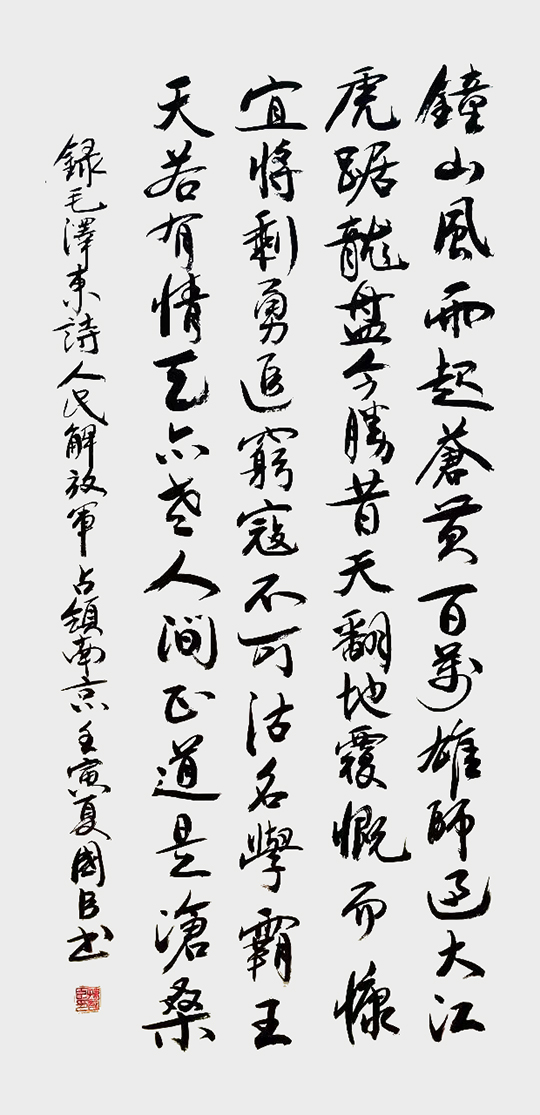 鐘山風雨起蒼黄百萬雄師過大江
虎踞龍盘今勝昔天翻地覆慨而慷
宜將剩勇追窮寇不可沽名學霸王
天若有情天亦老人間正道是滄桑
録毛澤東詩人民解放軍占領南京壬寅夏國臣书